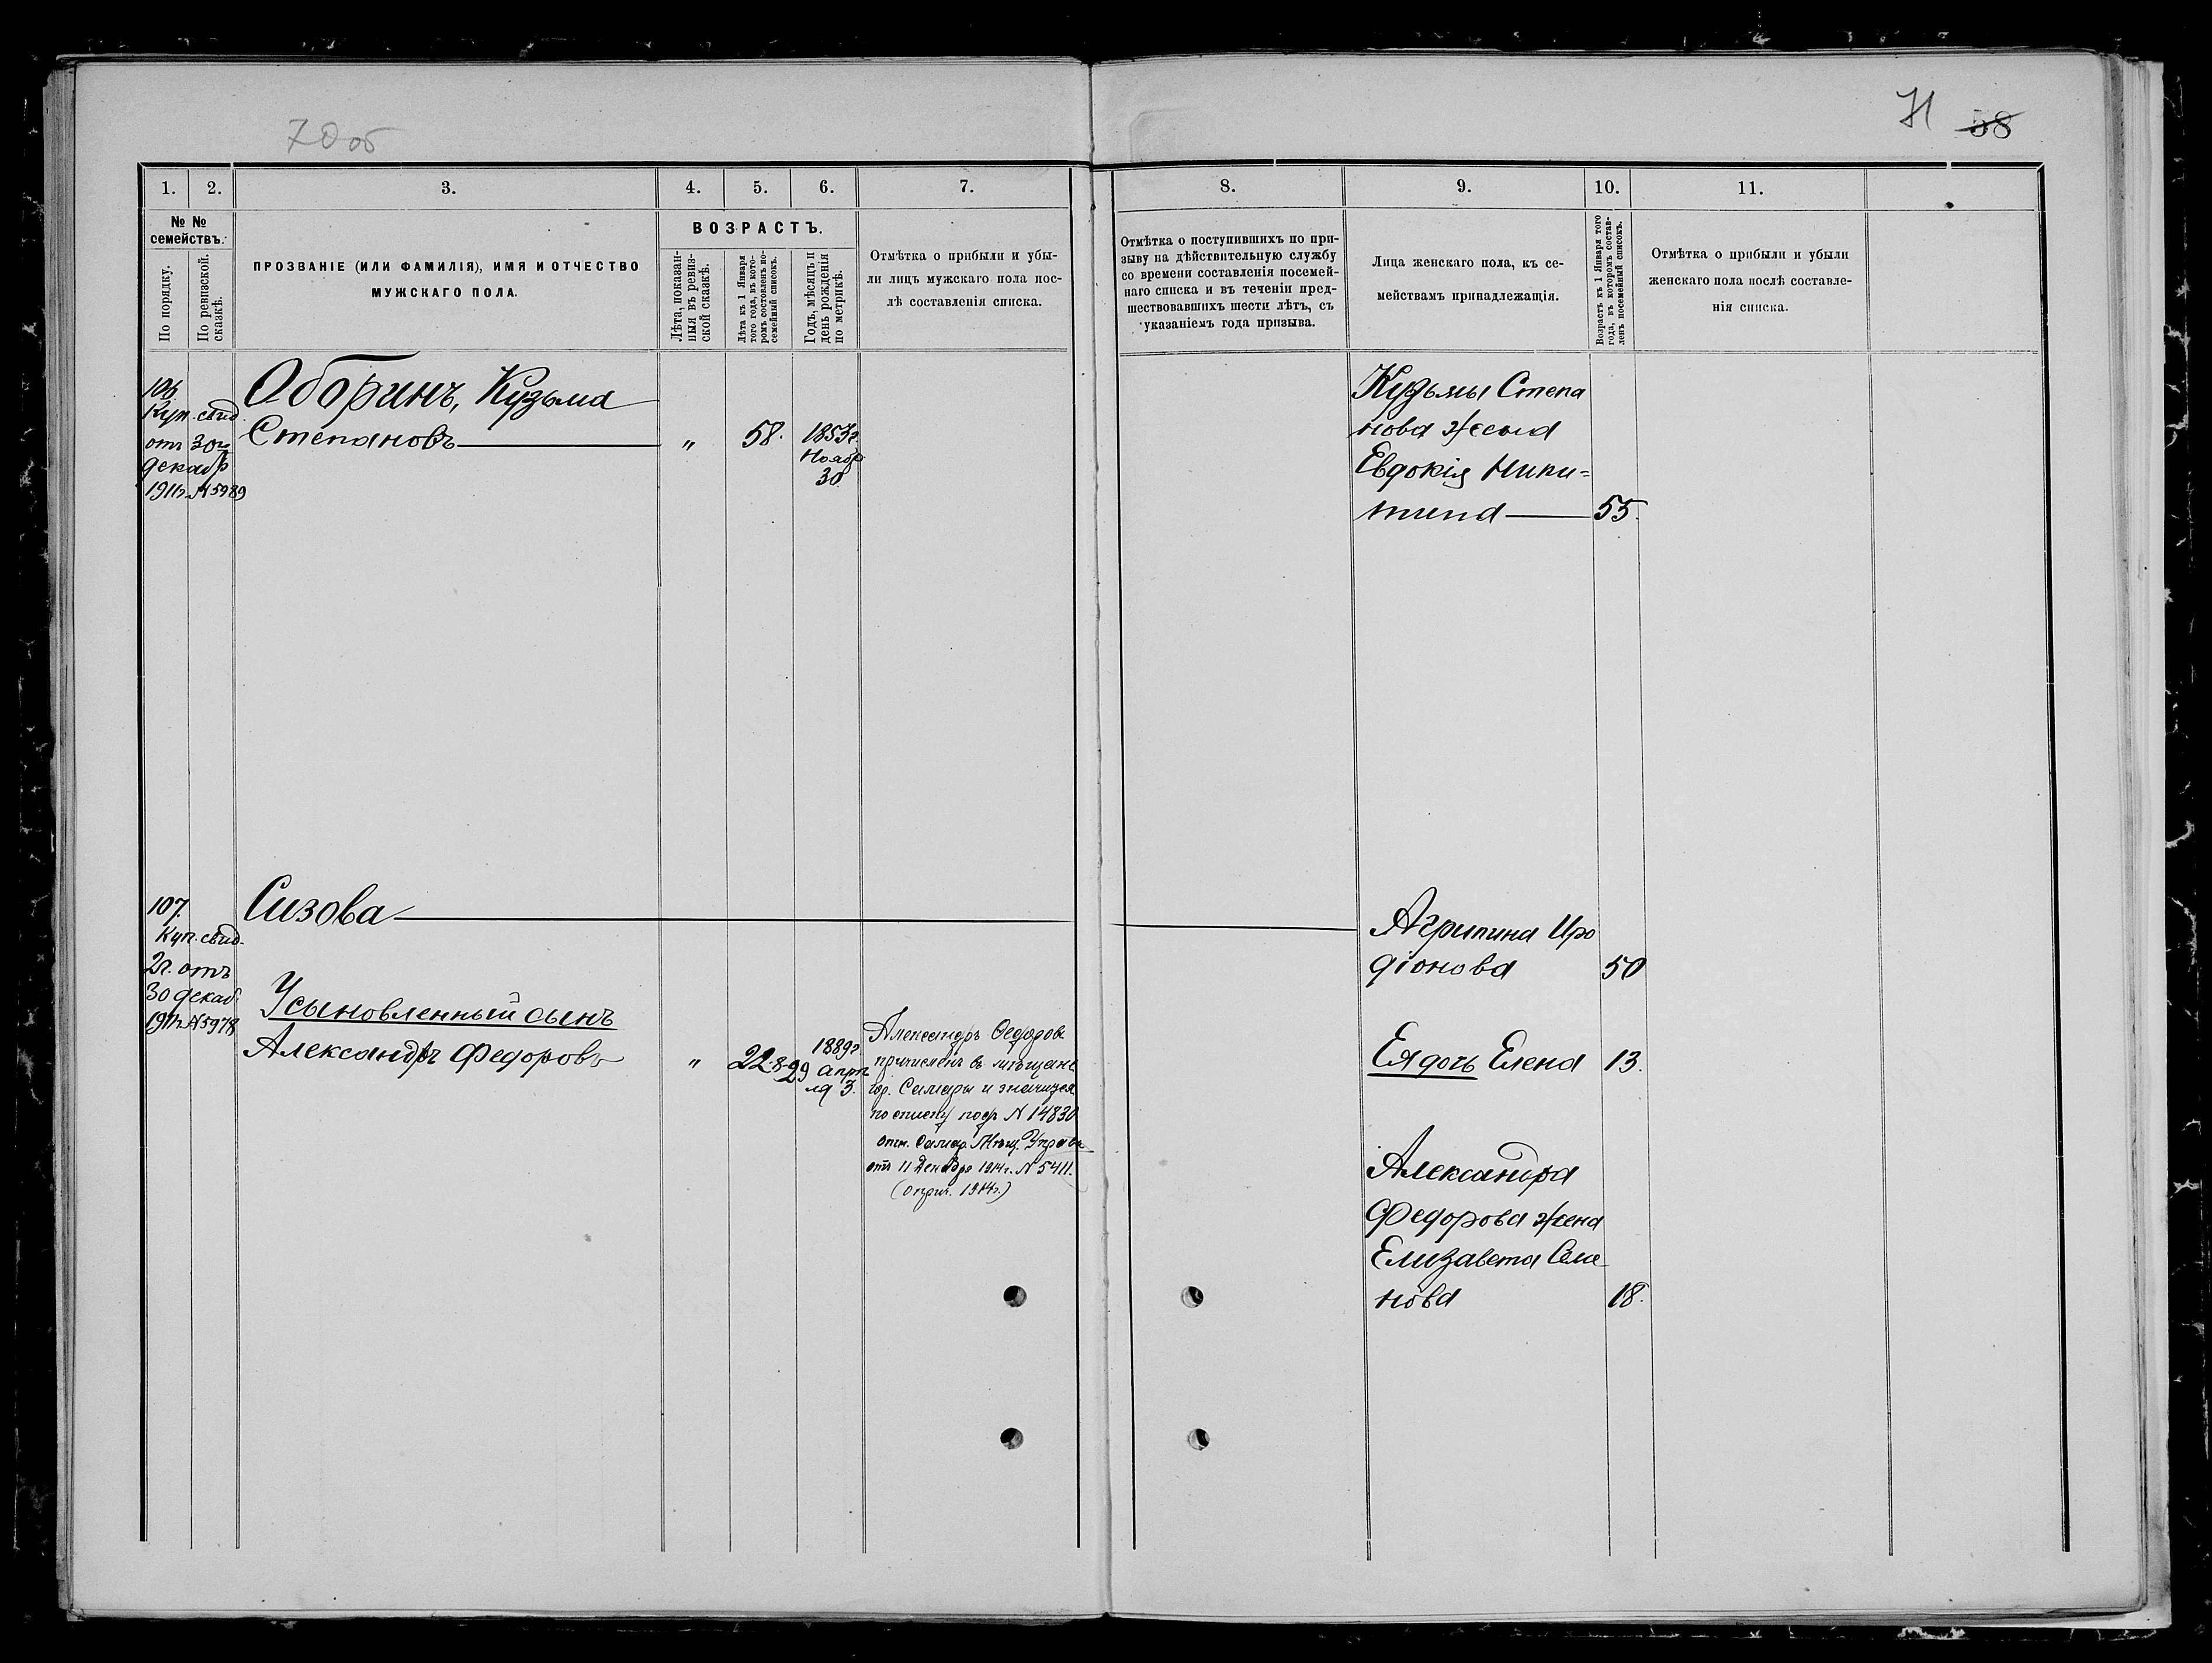 70 об
71 58
1. 2. 3. 4. 5. 6. 7.
№ №
семействъ.
По порядку.
По ревизской.
сказкѣ.
ПРОЗВАНІЕ (ИЛИ ФАМИЛІЯ), ИМЯ И ОТЧЕСТВО
МУЖСКАГО ПОЛА.
ВОЗРАСТЪ.
Лѣта, показан-
ныя въ ревиз-
ской сказкѣ.
Лѣта къ 1 Января
того года, въ кото-
ромъ состовленъ по-
семейный списокъ.
Годъ, мѣсяцъ и
день рожденія
по метрикѣ.
Отмѣтка о прибыли и убы-
ли лицъ мужскаго пола пос-
лѣ составленія списка.
8. 9. 10. 11.
Отмѣтка о поступившихъ по при-
зыву на дѣйствительную службу
со времени составленія посемей-
наго списка и въ теченіи пред-
шествовавшихъ шести лѣтъ, съ
указаніемъ года призыва.
Лица женскаго пола, къ се-
мействамъ принадлежащія.
Возрастъ къ 1 Января того
года, въ которомъ состав-
ленъ посемейный списокъ.
Отмѣтка о прибыли и убыли
женскаго пола послѣ составле-
нія списка.
106.
Куп. свид.
отъ 30
декабр
1911г. №5989
Оборинъ, Кузьма
Степановъ
" 58. 1853г.
Ноябр
30
Кузьмы Степа
нова жена
Евдокія Ники-
тина 55.
107.
Куп. свид.
2г. отъ
30 декаб.
1911г №5978
Сизова
Усыновленный сынъ
Александръ Федоровъ
" 22.8-29 1889г
апрѣ
ля 3.
Александръ Ѳедоровъ
причисленъ въ мѣщане
гор. Самары и значится
по списку подъ № 14830
отн. Самар. Мѣщ. Управы
отъ 11 Декабря 1914г. № 5411.
Агрипина Иро
діонова 50
Ея дочь Елена 13.
Александра
Федорова жена
Елизавета Семе
нова 18.